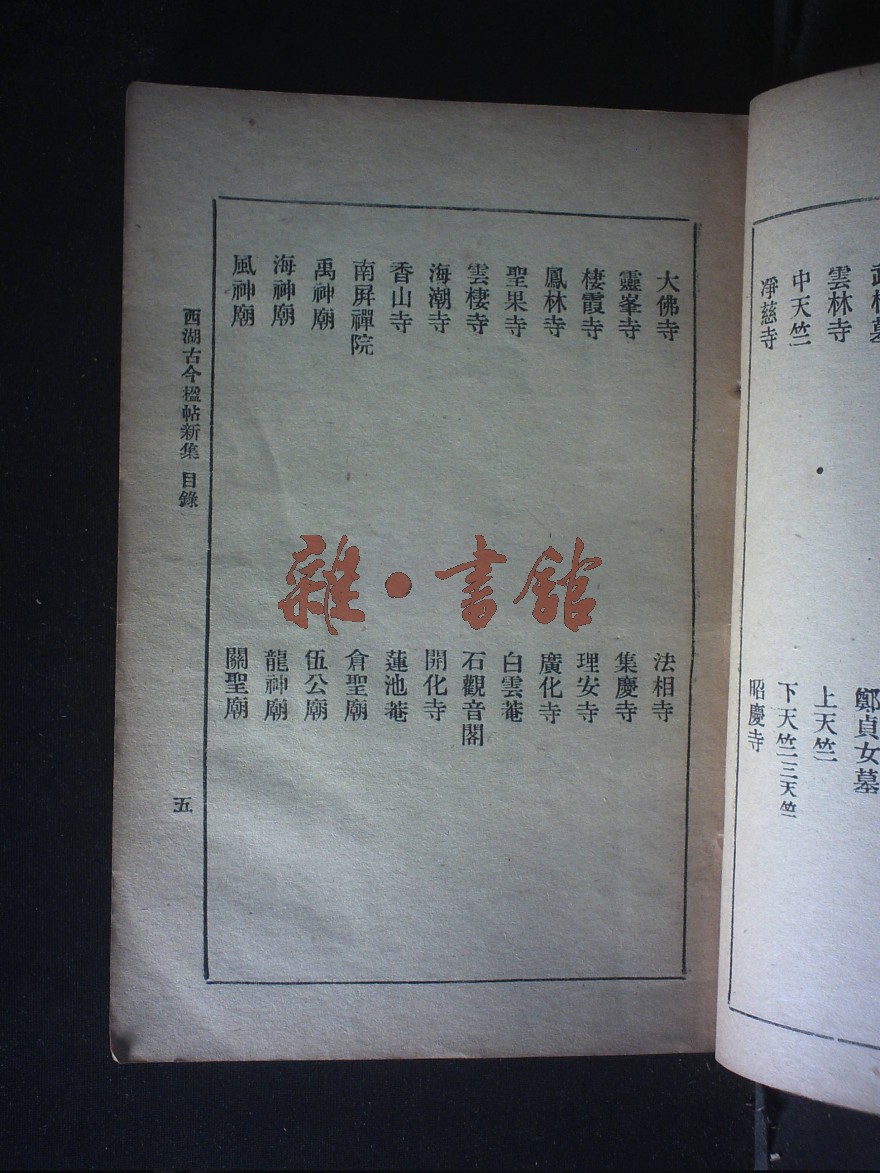 雲林寺
中天竺
淨慈寺
鄭貞女墓
上天竺
下天竺三天竺
昭慶寺
大佛寺
法相寺
靈峯寺
集慶寺
棲霞寺
理安寺
鳳林寺
廣化寺
聖果寺
白雲菴
雲棲寺
石觀音閣
海潮寺
開化寺
香山寺
蓮池菴
南屏禪院
倉聖廟
禹神廟
伍公廟
海神廟
龍神廟
風神廟
關聖廟
西湖古今楹帖新集 目錄
五
雜·書館